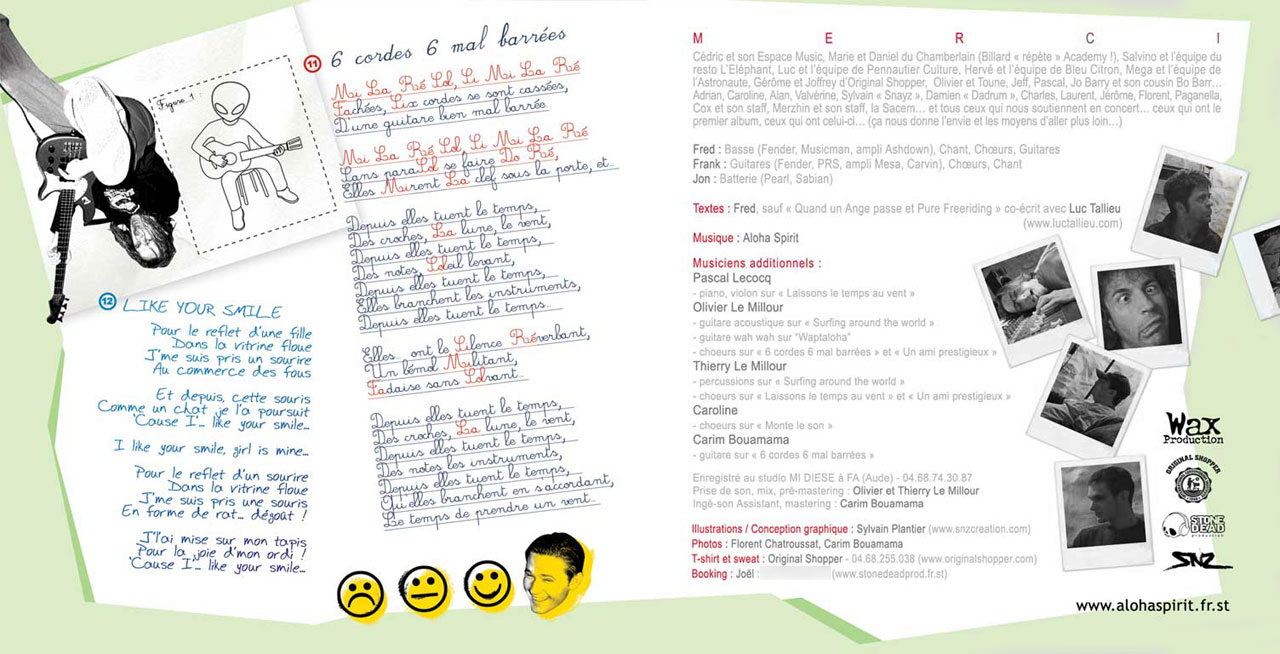 Figure 1 :
11
6 cordes 6 mal barrées
Mi La Ré Sol, Si Mi La Ré
Fâchées, Six cordes se sont cassées,
D'une guitare bien mal barrée
Mi La Ré Sol, Si Mi La Ré
Sans paraSol se faire Do Ré,
Elles Mirent La clef sous la porte, et...
Depuis elles tuent le temps,
Des croches, La lune, le vent,
Depuis elles tuent le temps,
Des notes, Soleil levant,
Depuis elles tuent le temps,
Elles branchent les instruments,
Depuis elles tuent le temps...
Elles... ont le Silence Réverbant,
Un bémol Militant,
Fadaise sans Solvant...
Depuis elles tuent le temps,
Des croches, La lune, le vent,
Depuis elles tuent le temps,
Des notes les instruments,
Depuis elles tuent le temps,
Qu'elles branchent en s'accordant,
Le temps de prendre un vent...
12
LIKE YOUR SMILE
Pour le reflet d'une fille
Dans la vitrine floue
J'me suis pris un sourire
Au commerce des fous
Et depuis, cette souris
Comme un chat je l'a poursuit
'Cause I'... like your smile...
I like your smile, girl is mine...
Pour le reflet d'un sourire
Dans la vitrine floue
J'me suis pris une souris
En forme de rat... dégoût !
J'l'ai mise sur mon tapis
Pour la joie d'mon ordi !
'Cause I'... like your smile...
M E R C I
Cédric et son Espace Music, Marie et Daniel du Chamberlain (Billard « répète » Academy !), Salvino et l'équipe du
resto L'Eléphant, Luc et l'équipe de Pennautier Culture, Hervé et l'équipe de Bleu Citron, Mega et l'équipe de
l'Astronaute, Gérôme et Joffrey d'Original Shopper, Olivier et Toune, Jeff, Pascal, Jo Barry et son cousin Bo Barr...
Adrian, Caroline, Alan, Valvérine, Sylvain « Snayz », Damien « Dadrum », Charles, Laurent, Jérôme, Florent, Paganella,
Cox et son staff, Merzhin et son staff, la Sacem... et tous ceux qui nous soutiennent en concert... ceux qui ont le
premier album, ceux qui ont celui-ci... (ça nous donne l'envie et les moyens d'aller plus loin...)
Fred : Basse (Fender, Musicman, ampli Ashdown), Chant, Chœurs, Guitares
Frank : Guitares (Fender, PRS, ampli Mesa, Carvin), Chœurs, Chant
Jon : Batterie (Pearl, Sabian)
Textes : Fred, sauf « Quand un Ange passe et Pure Freeriding » co-écrit avec Luc Tallieu
(www.luctallieu.com)
Musique : Aloha Spirit
Musiciens additionnels :
Pascal Lecocq
- piano, violon sur « Laissons le temps au vent »
Olivier Le Millour
- guitare acoustique sur « Surfing around the world »
- guitare wah wah sur "Waptaloha"
- choeurs sur « 6 cordes 6 mal barrées » et « Un ami prestigieux »
Thierry Le Millour
- percussions sur « Surfing around the world »
- choeurs sur « Laissons le temps au vent » et « Un ami prestigieux »
Caroline
- choeurs sur « Monte le son »
Carim Bouamama
- guitare sur « 6 cordes 6 mal barrées »
Enregistré au studio MI DIESE à FA (Aude) - 04.68.74.30.87
Prise de son, mix, pré-mastering : Olivier et Thierry Le Millour
Ingé-son Assistant, mastering : Carim Bouamama
Illustrations / Conception graphique : Sylvain Plantier (www.snzcreation.com)
Photos : Florent Chatroussat, Carim Bouamama
T-shirt et sweat : Original Shopper - 04.68.255.038 (www.originalshopper.com)
Booking : Joël : (www.stonedeadprod.fr.st)
Wax
Production
ORIGINAL SHOPPER
STONE
DEAD
production
SNZ
www.alohaspirit.fr.st